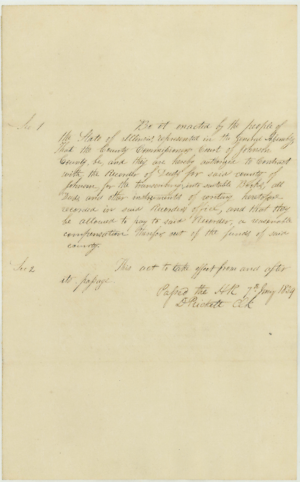 Sec. 1 Be it enacted by the people of
the State of Illinois represented in the General Assembly
that the County Commissioners Court of Johnson
County, be, and they are hereby authorized to Contract
with the Recorder of Deeds for said county of
Johnson, for the transcribing into suitable Books, all
Deeds and other instruments of writing heretofore
recorded in said Recorders Office, and that they
be allowed to pay to said Recorder, a reasonable
compensation therefor out of the funds of said
county.
Sec. 2 This act to take effect from and after
its passage
Passed the H.R. 7th Jany 1839
D Prickett Clk